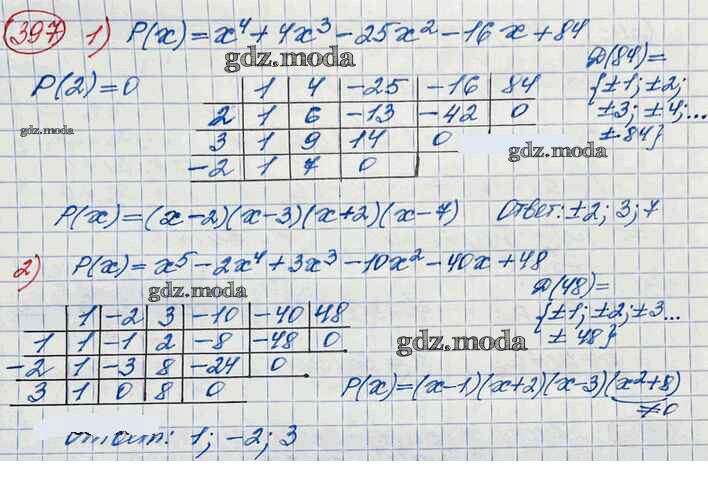 397 1) P(x) = x⁴ + 4x³ - 25x² - 16x + 84
gdz.moda
P(2)=0
Д(84)=
{±1; ±2;
±3; ±4; ...
± 84}
1 4 -25 -16 84
2 1 6 -13 -42 0
3 1 9 14 0
-2 1 7 0
gdz.moda
gdz.moda
P(x)=(x-2)(x-3)(x+2)(x-7) Ответ: ±2; 3; 7
2) P(x) = x⁵ - 2x⁴ + 3x³ - 10x² - 40x + 48
gdz.moda
Д(48)=
{±1; ±2; ±3...
± 48}
1 -2 3 -10 -40 48
1 1 -1 2 -8 -48 0
-2 1 -3 8 -24 0
3 1 0 8 0
gdz.moda
P(x)=(x-1)(x+2)(x-3)(x²+8)
≠0
ответ: 1; -2; 3